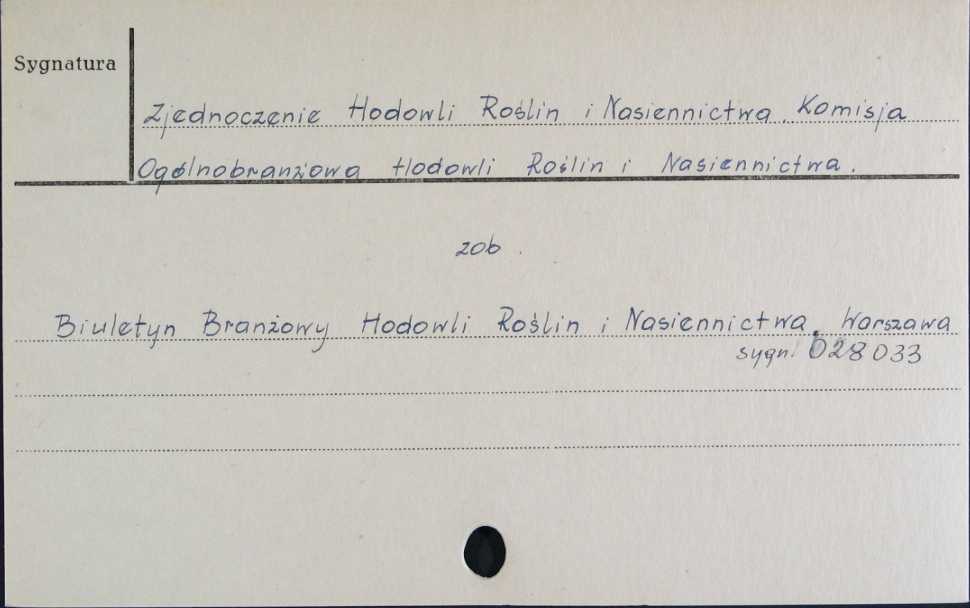 Sygnatura
Zjednoczenie Hodowli Roślin i Nasiennictwa. Komisja
Ogólnobranżowa Hodowli Roślin i Nasiennictwa.
zob.
Biuletyn Branżowy Hodowli Roślin i Nasiennictwa. Warszawa
sygn. 028033